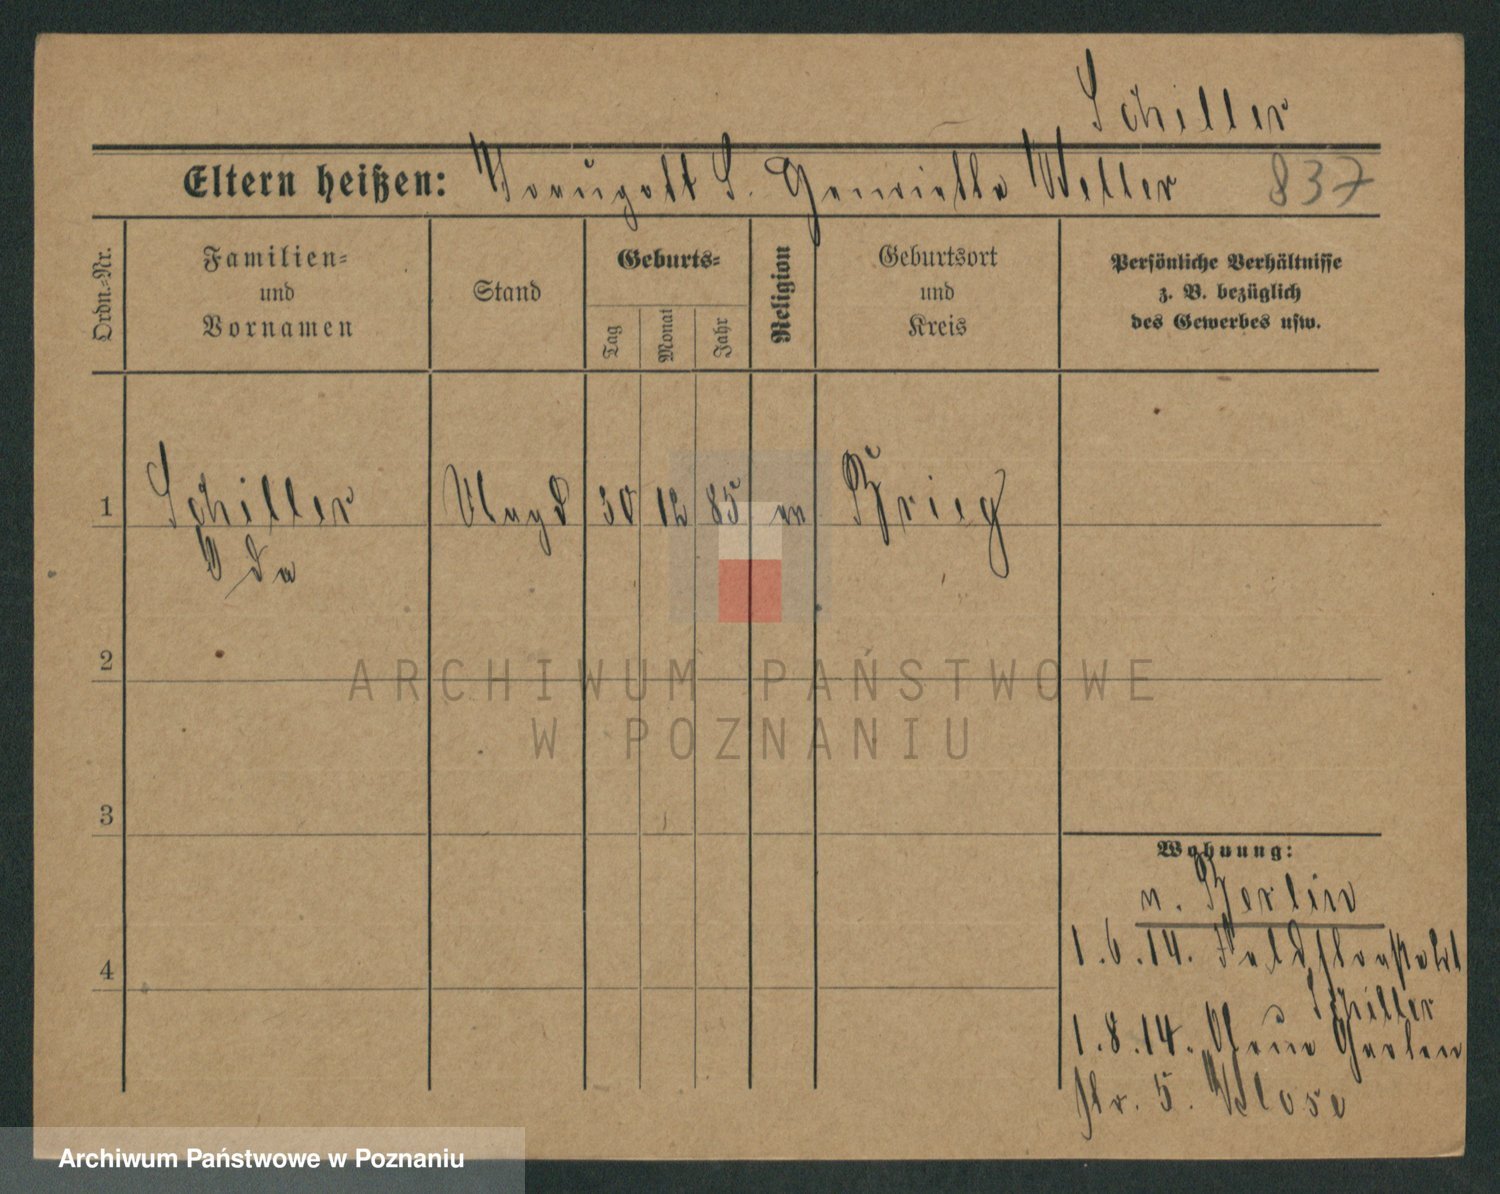 Schiller
Eltern heißen: Traugott S. Henriette Weller 837
Ordn.-Nr.
Familien-
und
Vornamen
Stand
Geburts-
Tag
Monat
Jahr
Religion
Geburtsort
und
Kreis
Persönliche Verhältnisse
z. B. bezüglich
des Gewerbes usw.
1 Schiller Magd 30 12 85 ev Brieg
Ida
2
3
4
Wohnung:
n. Berlin
1.6.14.
Schiller
1.8.14. Neue Garten
str. 5. Klose
ARCHIWUM PAŃSTWOWE
W POZNANIU
Archiwum Państwowe w Poznaniu